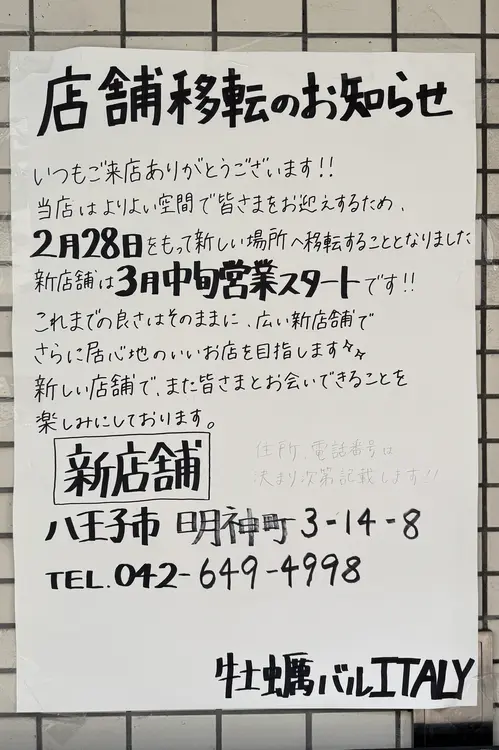 店舗移転のお知らせ
いつもご来店ありがとうございます!!
当店はよりよい空間で皆さまをお迎えするため、
2月28日をもって新しい場所へ移転することとなりました
新店舗は3月中旬営業スタートです!!
これまでの良さはそのままに、広い新店舗で
さらに居心地のいいお店を目指します
新しい店舗で、また皆さまとお会いできることを
楽しみにしております。
新店舗
住所、電話番号は
決まり次第記載します!!
八王子市 明神町 3-14-8
TEL.042-649-4998
牡蠣バルITALY